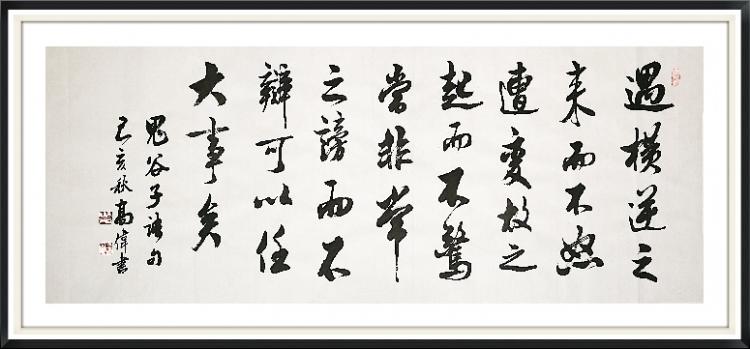 遇橫逆之
来而不怒
遭变故之
起而不驚
當非常
之謗而不
辯可以任
大事矣
鬼谷子语句
己亥秋高偉書